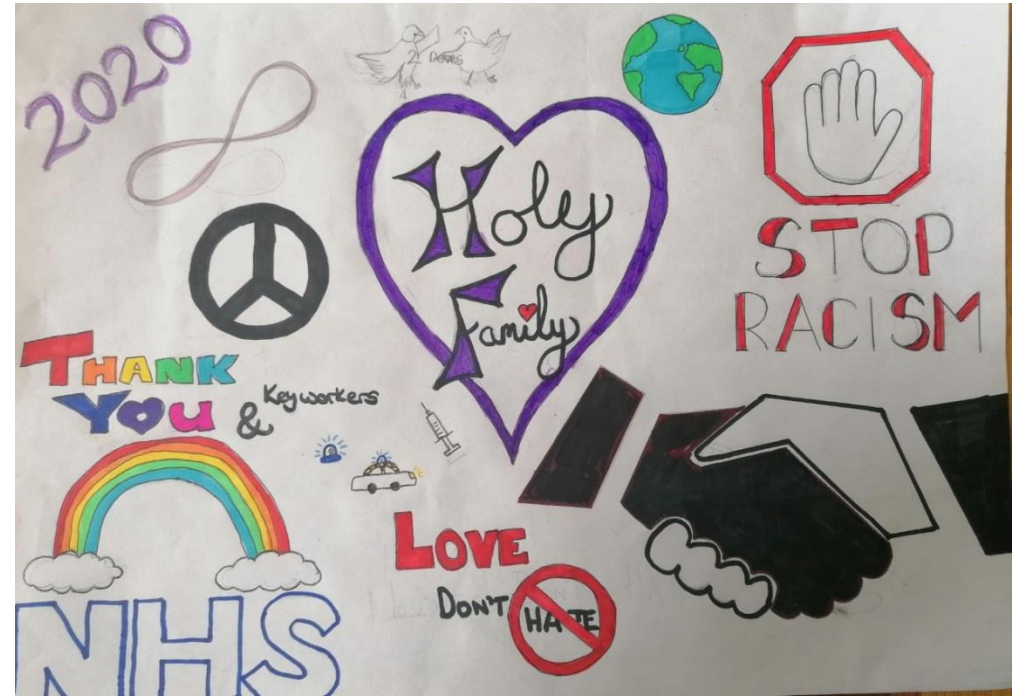 2020
2 Doves
Holy
Family
STOP
RACISM
THANK
YOU & Keyworkers
LOVE
DON'T HATE
NHS